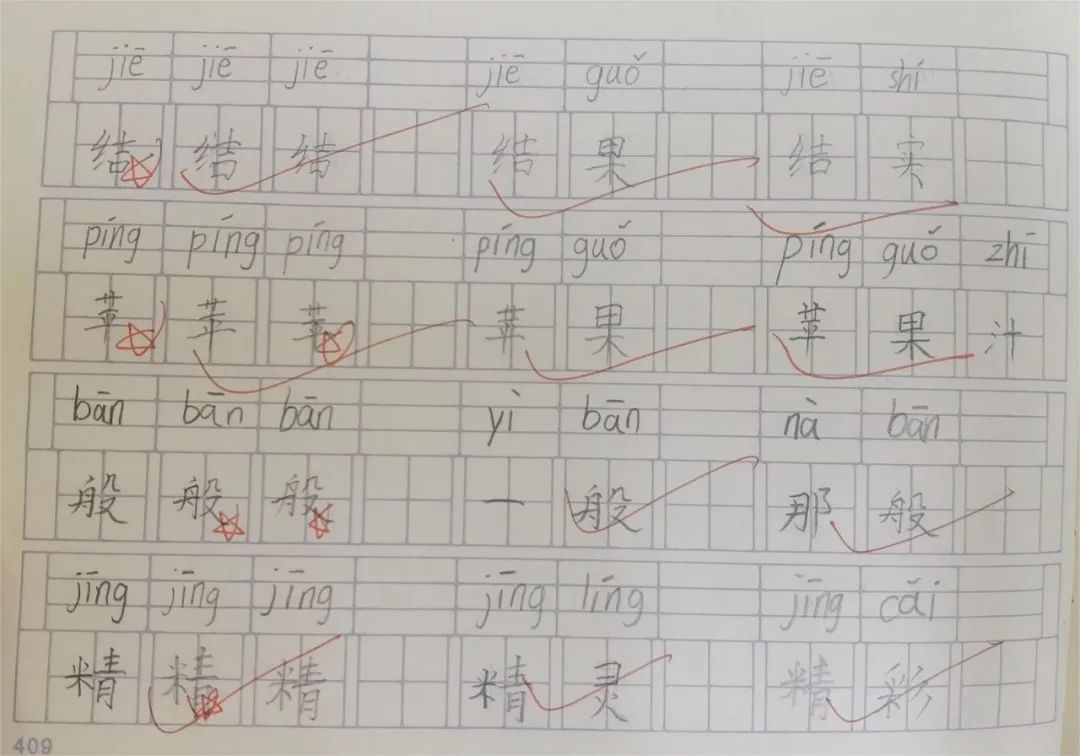 jiē jiē jiē jiē guǒ jiē shí
结 结 结 结 果 结 实
píng píng píng píng guǒ píng guǒ zhī
苹 苹 苹 苹 果 苹 果 汁
bān bān bān yì bān nà bān
般 般 般 一 般 那 般
jīng jīng jīng jīng líng jīng cǎi
精 精 精 精 灵 精 彩
409